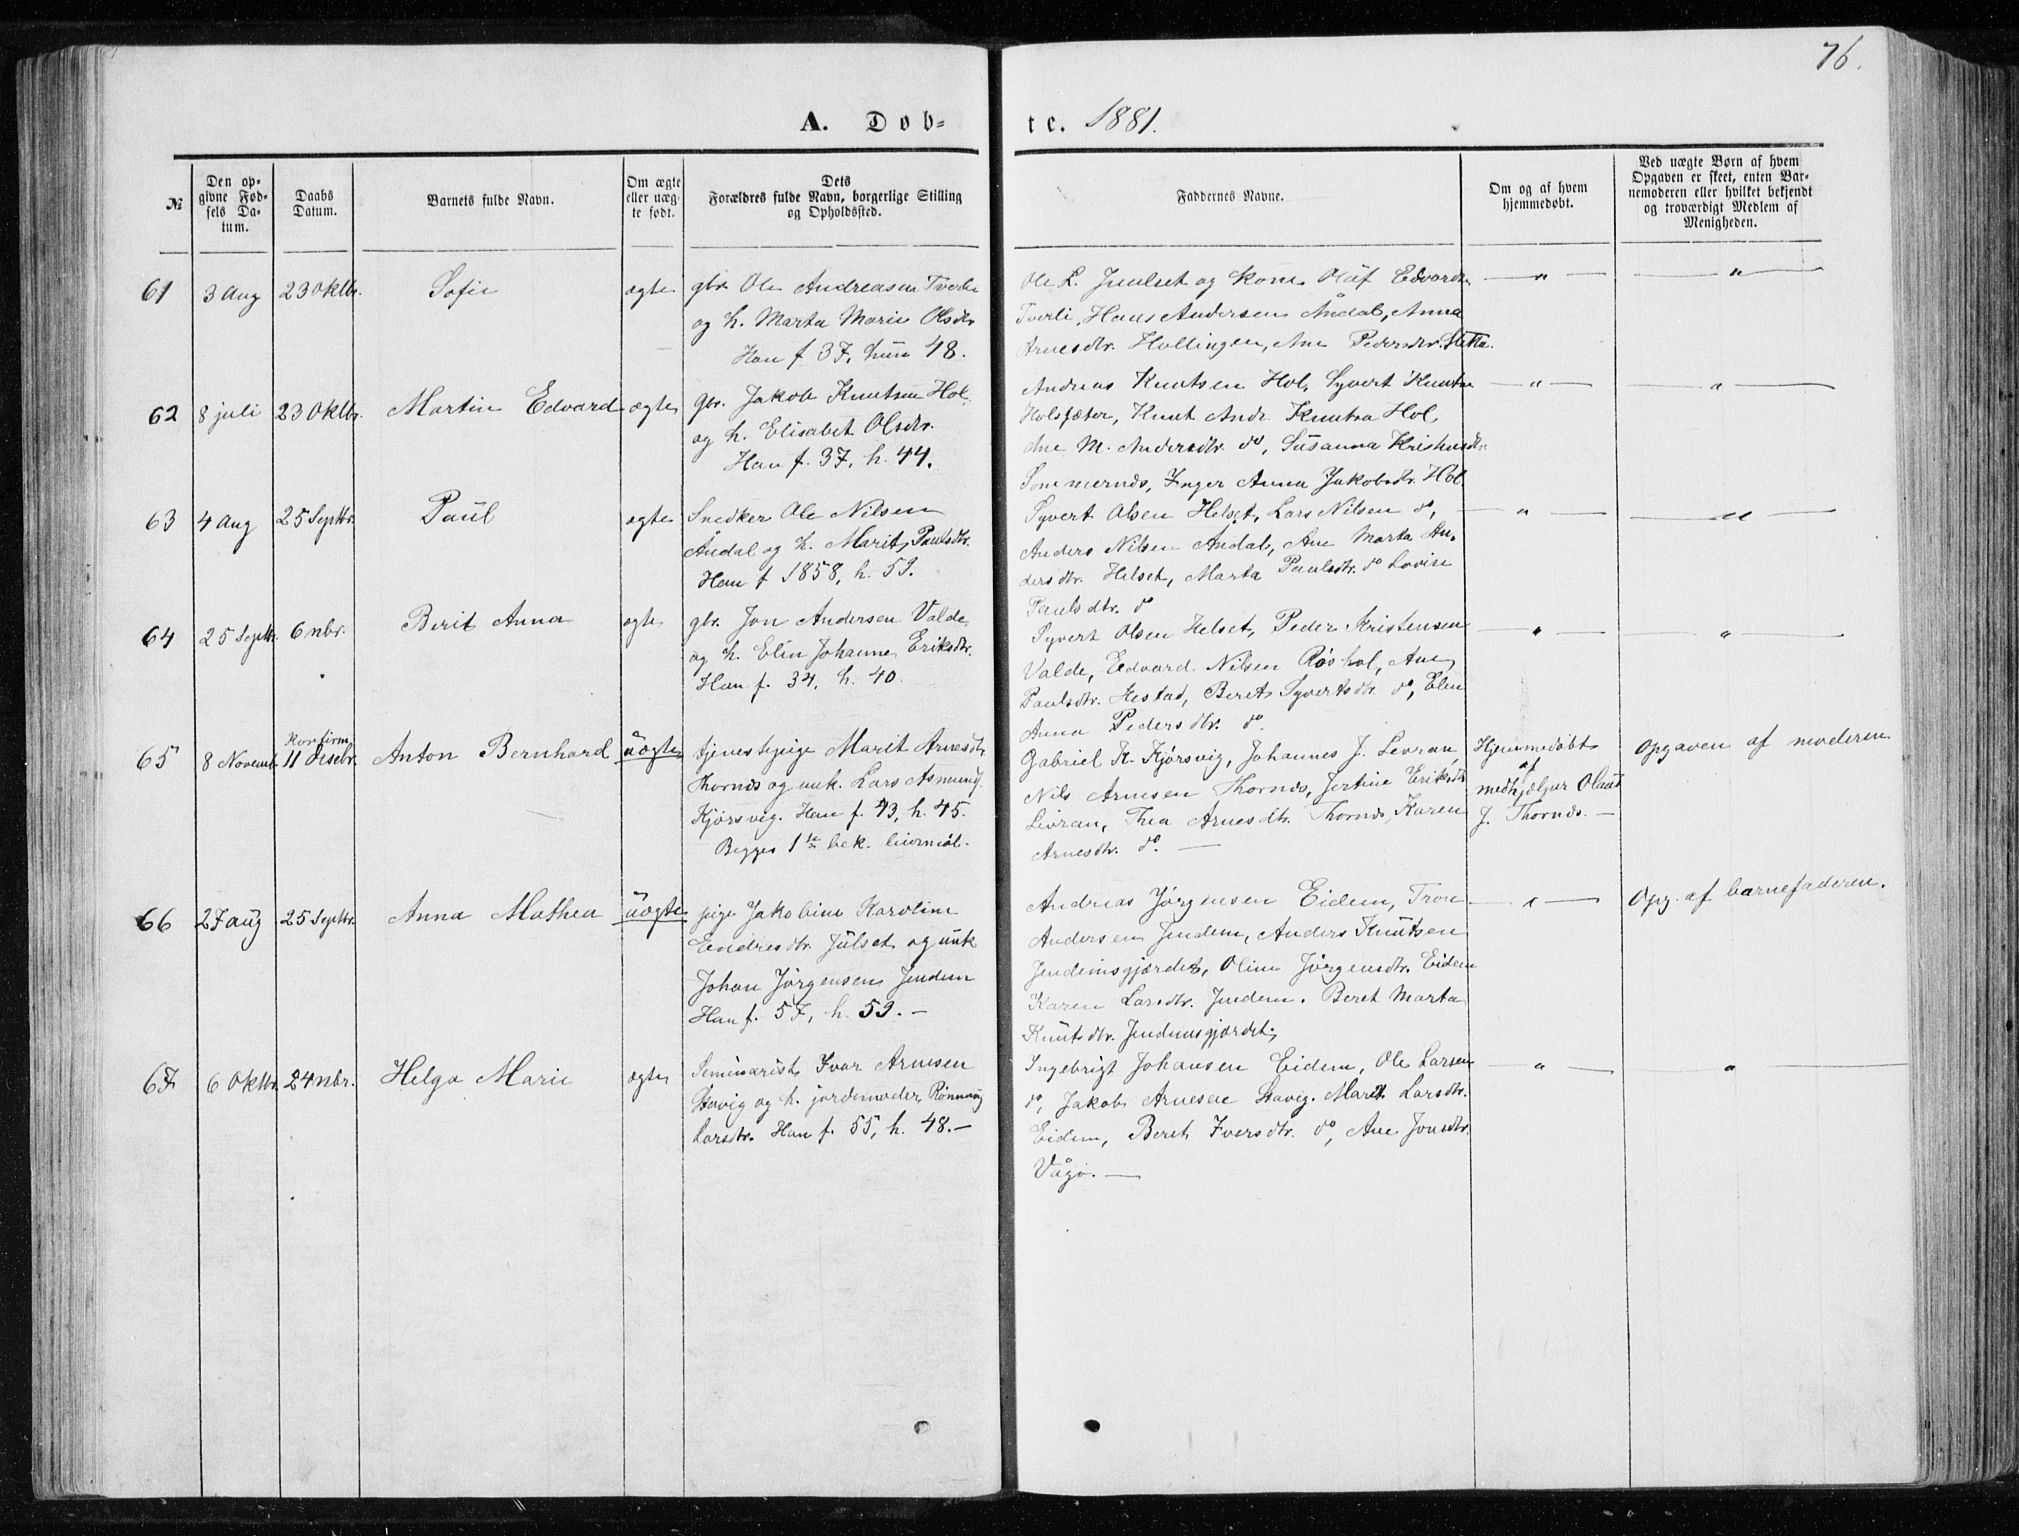 76.
A. Døb=
te. 1881.
№
Den op=
givne Fød=
sels Da=
tum.
Daabs
Datum.
Barnets fulde Navn.
Om ægte
eller uæg=
te født.
Dets
Forældres fulde Navn, borgerlige Stilling
og Opholdssted.
Faddernes Navne.
Om og af hvem
hjemmedøbt.
Ved uægte Børn af hvem
Opgaven er skeet, enten Bar=
nemoderen eller hvilket bekjendt
og troværdigt Medlem af
Menigheden.
61
3 Aug
23 Oktbr.
Sofie
ægte
gbr. Ole Andreasen Tverli
og h. Marta Marie Olsdtr
Han f 37, hun 48.
Ole L. Julset og kone Olaf Edvardsen
Tverli, Hans Andersen Åndal, Anna
Arnesdtr. Hollingen, Ane Pedersdtr.
— " —
"
62
8 juli
23 Oktbr.
Martin Edvard
ægte
gbr. Jakob Knutsen Hol
og h. Elisabet Olsdtr.
Han f. 37, h. 44.
Andreas Knutsen Hol, Syvert Knutsen
Holsfæter, Knut Andr. Knutsen Hol,
Ane M. Andersdtr. do, Susanna
Sommernæs, Inger Anna Jakobsdtr. Hol.
— " —
"
63
4 Aug
25 Septbr.
Paul
ægte
Snedker Ole Nilsen
Åndal og h. Marit Paulsdtr.
Han f 1858, h. 59.
Syvert Olsen Helset, Lars Nilsen do,
Anders Nilsen Åndal, Ane Marta An-
dersdtr. Helset, Marta Paulsdtr. do Lovise
Paulsdtr. do
— " —
— " —
64
25 Septbr.
6 nbr.
Berit Anna
ægte
gbr. Jon Andersen Valde
og h. Elin Johanne Eriksdtr.
Han f. 34, h. 40.
Syvert Olsen Helset, Peder Kristensen
Valde, Edvard Nilsen Røshol, Ane
Paulsdtr. Hestad, Beret Syvertsdtr. do, Elen
Anna Pedersdtr. do
— " —
— " —
65
8 Novemb
konfirm.
11 desebr.
Anton Bernhard
uægte
tjenestepige Marit Arnesdtr
Thornæs og unk. Lars Asmunds.
Kjørsvig. Han f. 43, h. 45.
Begges 1te bek. leiermål.
Gabriel K. Kjørsvig, Johannes J. Levran,
Nils Arnesen Thornæs, Jertine Eriksdtr
Levran, Thea Arnesdtr. Thornæs, Karen
Arnesdtr. do. —
Hjemmedøbt
af
medhjælper Olaus
J. Thornæs. —
Opgaven af moderen
66
27 aug
25 Septbr.
Anna Mathea
uægte
pige Jakobine Karoline
Endresdtr. Julset og unk
Johan Jørgensen Jendem
Han f. 57, h. 59. —
Andreas Jørgensen Eidem, Tron
Andersen Jendem, Anders Knutsen
Jendemsgjærdet, Oline Jørgensdtr. Eidem
Karen Larsdtr. Jendem. Beret Marta
Knutsdtr. Jendemsgjærdet.
— " —
Opg. af barnefaderen.
67
6 Oktbr.
24 nbr.
Helga Marie
ægte
Seminarist Ivar Arnesen
Stavig og h. jordemoder Rønnaug
Larsdtr. Han f. 55, h. 48. —
Ingebrigt Johansen Eidem, Ole Larsen
do, Jakob Arnesen Stavig. Marit Larsdtr.
Eidem, Beret Iversdtr. do, Ane Jonsdtr.
Vågø. —
— " —
"